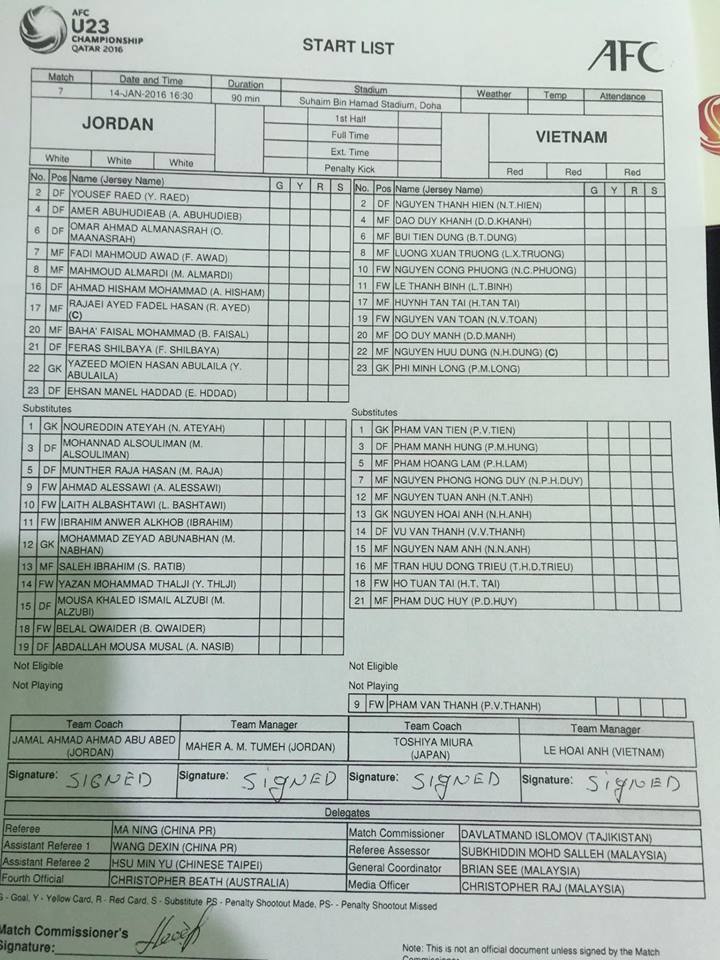 AFC
U23
CHAMPIONSHIP
QATAR 2016
START LIST
AFC
Match Date and Time Duration Stadium Weather Temp Attendance
7 14-JAN-2016 16:30 90 min Suhaim Bin Hamad Stadium, Doha
JORDAN
White White White
1st Half
Full Time
Ext. Time
Penalty Kick
VIETNAM
Red Red Red
No. Pos Name (Jersey Name) G Y R S
2 DF YOUSEF RAED (Y. RAED)
4 DF AMER ABUHUDIEAB (A. ABUHUDIEB)
6 DF OMAR AHMAD ALMANASRAH (O.
MAANASRAH)
7 MF FADI MAHMOUD AWAD (F. AWAD)
8 MF MAHMOUD ALMARDI (M. ALMARDI)
16 DF AHMAD HISHAM MOHAMMAD (A. HISHAM)
17 MF RAJAEI AYED FADEL HASAN (R. AYED)
(C)
20 MF BAHA' FAISAL MOHAMMAD (B. FAISAL)
21 DF FERAS SHILBAYA (F. SHILBAYA)
22 GK YAZEED MOIEN HASAN ABULAILA (Y.
ABULAILA)
23 DF EHSAN MANEL HADDAD (E. HDDAD)
No. Pos Name (Jersey Name) G Y R S
2 DF NGUYEN THANH HIEN (N.T.HIEN)
4 MF DAO DUY KHANH (D.D.KHANH)
6 MF BUI TIEN DUNG (B.T.DUNG)
8 MF LUONG XUAN TRUONG (L.X.TRUONG)
10 FW NGUYEN CONG PHUONG (N.C.PHUONG)
11 FW LE THANH BINH (L.T.BINH)
17 MF HUYNH TAN TAI (H.TAN TAI)
19 FW NGUYEN VAN TOAN (N.V.TOAN)
20 MF DO DUY MANH (D.D.MANH)
22 MF NGUYEN HUU DUNG (N.H.DUNG) (C)
23 GK PHI MINH LONG (P.M.LONG)
Substitutes
1 GK NOUREDDIN ATEYAH (N. ATEYAH)
3 DF MOHANNAD ALSOULIMAN (M.
ALSOULIMAN)
5 DF MUNTHER RAJA HASAN (M. RAJA)
9 FW AHMAD ALESSAWI (A. ALESSAWI)
10 FW LAITH ALBASHTAWI (L. BASHTAWI)
11 FW IBRAHIM ANWER ALKHOB (IBRAHIM)
12 GK MOHAMMAD ZEYAD ABUNABHAN (M.
NABHAN)
13 MF SALEH IBRAHIM (S. RATIB)
14 FW YAZAN MOHAMMAD THALJI (Y. THLJI)
15 DF MOUSA KHALED ISMAIL ALZUBI (M.
ALZUBI)
18 FW BELAL QWAIDER (B. QWAIDER)
19 DF ABDALLAH MOUSA MUSAL (A. NASIB)
Substitutes
1 GK PHAM VAN TIEN (P.V.TIEN)
3 DF PHAM MANH HUNG (P.M.HUNG)
5 MF PHAM HOANG LAM (P.H.LAM)
7 MF NGUYEN PHONG HONG DUY (N.P.H.DUY)
12 MF NGUYEN TUAN ANH (N.T.ANH)
13 GK NGUYEN HOAI ANH (N.H.ANH)
14 DF VU VAN THANH (V.V.THANH)
15 MF NGUYEN NAM ANH (N.N.ANH)
16 MF TRAN HUU DONG TRIEU (T.H.D.TRIEU)
18 FW HO TUAN TAI (H.T. TAI)
21 MF PHAM DUC HUY (P.D.HUY)
Not Eligible
Not Playing
Not Eligible
Not Playing
9 FW PHAM VAN THANH (P.V.THANH)
Team Coach Team Manager Team Coach Team Manager
JAMAL AHMAD AHMAD ABU ABED
(JORDAN)
MAHER A. M. TUMEH (JORDAN)
TOSHIYA MIURA
(JAPAN)
LE HOAI ANH (VIETNAM)
Signature: SIGNED Signature: SIgNED Signature: SIGNED Signature: SIgNED
Delegates
Referee MA NING (CHINA PR) Match Commissioner DAVLATMAND ISLOMOV (TAJIKISTAN)
Assistant Referee 1 WANG DEXIN (CHINA PR) Referee Assessor SUBKHIDDIN MOHD SALLEH (MALAYSIA)
Assistant Referee 2 HSU MIN YU (CHINESE TAIPEI) General Coordinator BRIAN SEE (MALAYSIA)
Fourth Official CHRISTOPHER BEATH (AUSTRALIA) Media Officer CHRISTOPHER RAJ (MALAYSIA)
G - Goal, Y - Yellow Card, R - Red Card, S - Substitute PS - Penalty Shootout Made, PS- - Penalty Shootout Missed
Match Commissioner's
Signature:
Note: This is not an official document unless signed by the Match